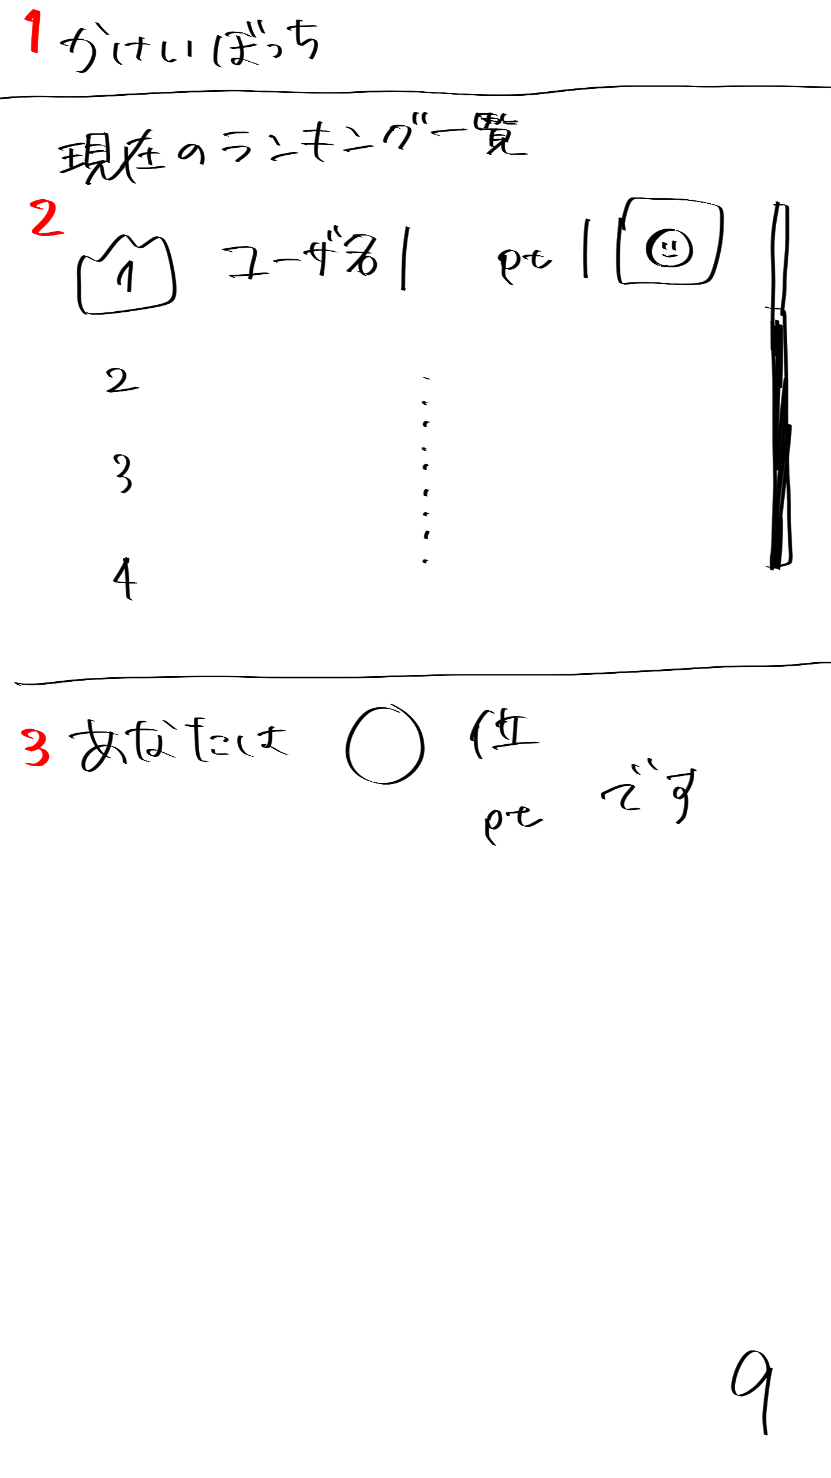 1 かけいぼっち
現在のランキング一覧
2
1 ユーザ名 | pt |
2
3
4
3 あなたは ○ 位
pt です
9